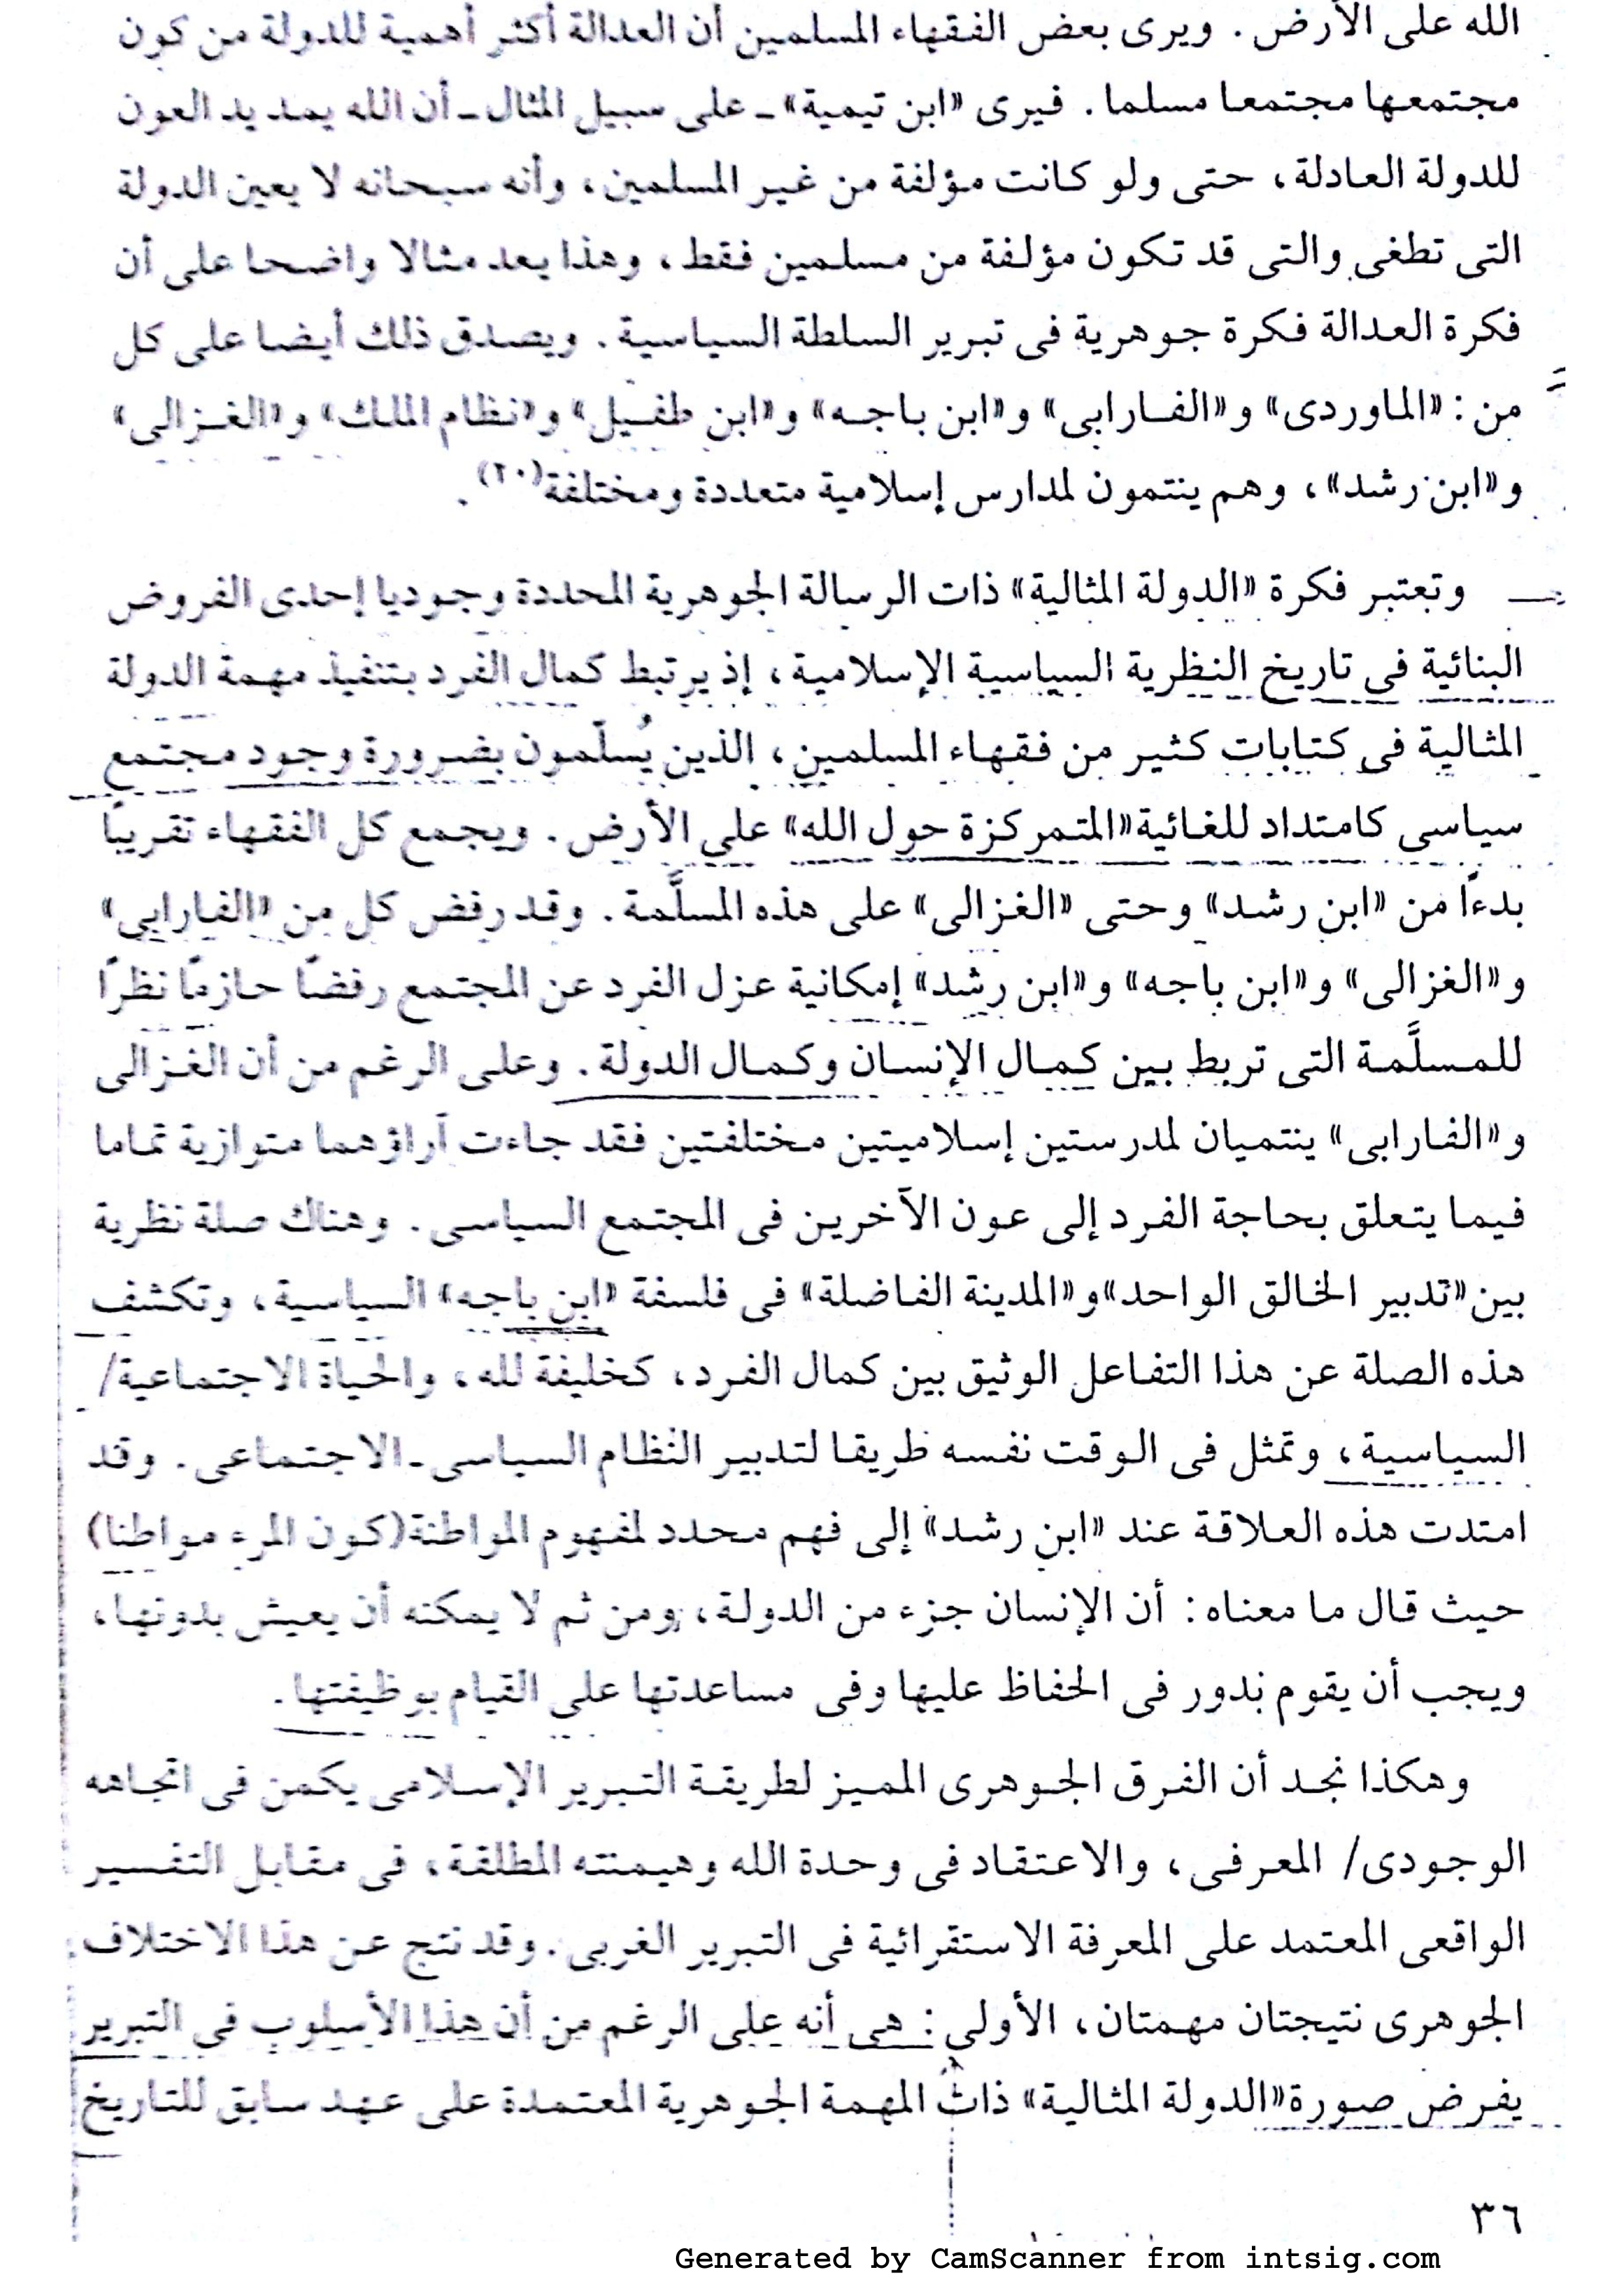 الله على الأرض. ويرى بعض الفقهاء المسلمين أن العدالة أكثر أهمية للدولة من كون
مجتمعها مجتمعا مسلما. فيرى «ابن تيمية» ـ على سبيل المثال ـ أن الله يمد يد العون
للدولة العادلة، حتى ولو كانت مؤلفة من غير المسلمين، وأنه سبحانه لا يعين الدولة
التى تطغى والتى قد تكون مؤلفة من مسلمين فقط، وهذا يعد مثالا واضحا على أن
فكرة العدالة فكرة جوهرية فى تبرير السلطة السياسية. ويصدق ذلك أيضا على كل
من: «الماوردى» و«الفارابى» و«ابن باجه» و«ابن طفيل» و«نظام الملك» و«الغزالى»
و«ابن رشد»، وهم ينتمون لمدارس إسلامية متعددة ومختلفة(٢٠).
وتعتبر فكرة «الدولة المثالية» ذات الرسالة الجوهرية المحددة وجوديا إحدى الفروض
البنائية فى تاريخ النظرية السياسية الإسلامية، إذ يرتبط كمال الفرد بتنفيذ مهمة الدولة
المثالية فى كتابات كثير من فقهاء المسلمين، الذين يُسلّمون بضرورة وجود مجتمع
سياسى كامتداد للغائية «المتمركزة حول الله» على الأرض. ويجمع كل الفقهاء تقريبًا
بدءًا من «ابن رشد» وحتى «الغزالى» على هذه المسلَّمة. وقد رفض كل من «الفارابى»
و«الغزالى» و«ابن باجه» و«ابن رشد» إمكانية عزل الفرد عن المجتمع رفضًا حازمًا نظرًا
للمسلَّمة التى تربط بين كمال الإنسان وكمال الدولة. وعلى الرغم من أن الغزالى
و«الفارابى» ينتميان لمدرستين إسلاميتين مختلفتين فقد جاءت آراؤهما متوازية تماما
فيما يتعلق بحاجة الفرد إلى عون الآخرين فى المجتمع السياسى. وهناك صلة نظرية
بين «تدبير الخالق الواحد» و«المدينة الفاضلة» فى فلسفة «ابن باجه» السياسية، وتكشف
هذه الصلة عن هذا التفاعل الوثيق بين كمال الفرد، كخليفة لله، والحياة الاجتماعية/
السياسية، وتمثل فى الوقت نفسه طريقا لتدبير النظام السياسى ـ الاجتماعى. وقد
امتدت هذه العلاقة عند «ابن رشد» إلى فهم محدد لمفهوم المواطنة (كون المرء مواطنا)
حيث قال ما معناه: أن الإنسان جزء من الدولة، ومن ثم لا يمكنه أن يعيش بدونها،
ويجب أن يقوم بدور فى الحفاظ عليها وفى مساعدتها على القيام بوظيفتها.
وهكذا نجد أن الفرق الجوهرى المميز لطريقة التبرير الإسلامى يكمن فى اتجاهه
الوجودى/ المعرفى، والاعتقاد فى وحدة الله وهيمنته المطلقة، فى مقابل التفسير
الواقعى المعتمد على المعرفة الاستقرائية فى التبرير الغربى. وقد نتج عن هذا الاختلاف
الجوهرى نتيجتان مهمتان، الأولى: هى أنه على الرغم من أن هذا الأسلوب فى التبرير
يفرض صورة «الدولة المثالية» ذات المهمة الجوهرية المعتمدة على عهد سابق للتاريخ
٣٦
Generated by CamScanner from intsig.com